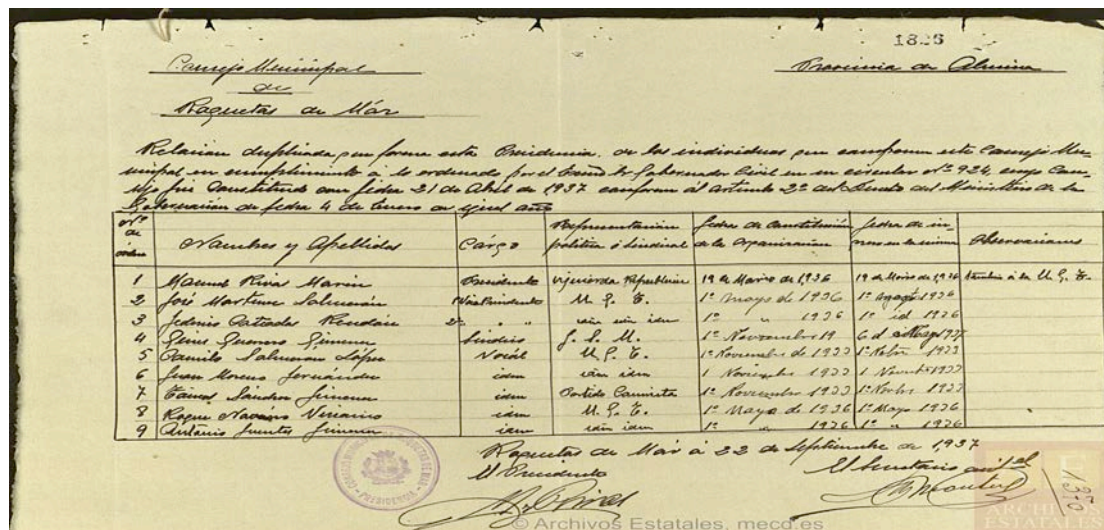 1836
Consejo Municipal
de
Roquetas de Már
Provincia de Almeria
Relacion duplicada que forma esta Presidencia, de los individuos que componen este Consejo Mu-
nicipal en cumplimiento á lo ordenado por el Excmo Sr Gobernador Civil en su circular nº 924, cuyo Con-
sejo fué Constituido con fecha 21 de Abril de 1937 conforme al articulo 2º del Decreto del Ministerio de la
Gobernación de fecha 4 de Enero de igual año
Nº de orden Nombres y Apellidos Cárgo Representacion politica ó Sindical fecha de Constitución de la Organizacion fecha de ingreso en la misma Observaciones
1 Manuel Rivas Marin Presidente Izquierda Republicana 19 de Marzo de 1936 19 de Marzo de 1936 á la U. G. T.
2 José Martinez Salmerón Vice Presidente U. G. T. 1º mayo de 1936 1º agosto 1936
3 Rendón 2º " " idem 1º " 1936 1º id 1936
4 Guerrero Gimenez Sindico 1º Noviembre 19
5 Camilo Salmeron López Vocál U. G. T. 1º Noviembre de 1933 1º 1933
6 Juan Moreno Fernández idem idem 1 Noviembre 1933 1 1933
7 Sánchez Gimenez idem Partido Comunista 1º Noviembre 1933 1º 1933
8 Roque Navarro idem U. G. T. 1º Mayo de 1936 1º Mayo 1936
9 Antonio Fuentes Gimenez idem idem 1º " 1936 1º " 1936
Roquetas de Már á 22 de Septiembre de 1937
El Presidente
El Secretario
PRESIDENCIA
© Archivos Estatales, mecd.es
ARCHIVOS
ESTATALES